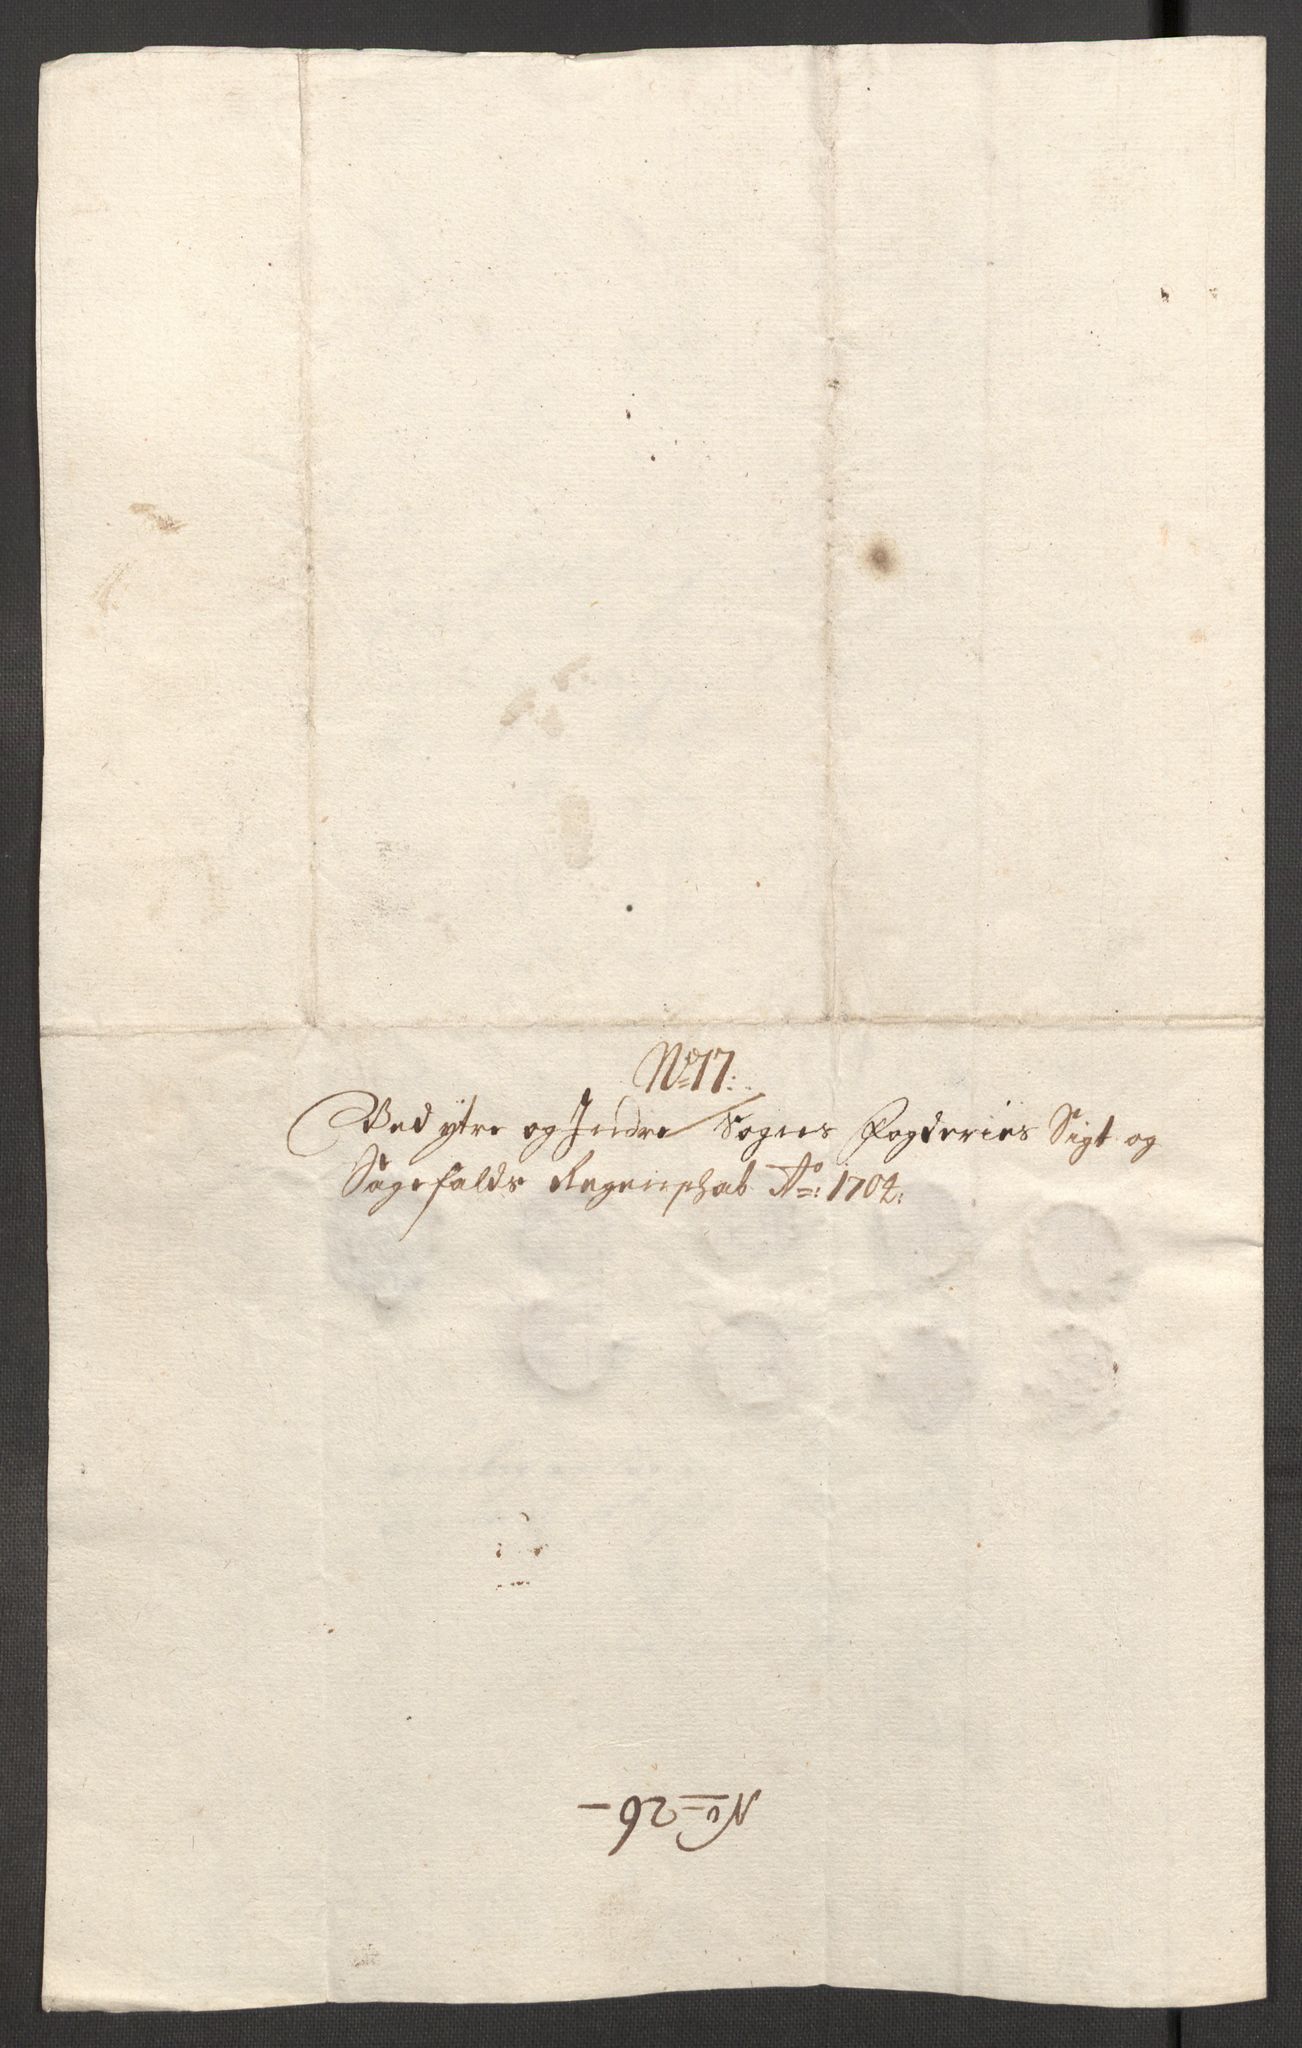 No 17:
Ved ytre og Indre Sogns Fogderies Sigt og
Sagefalds Regenschab Ao: 1704:
No = 26 -